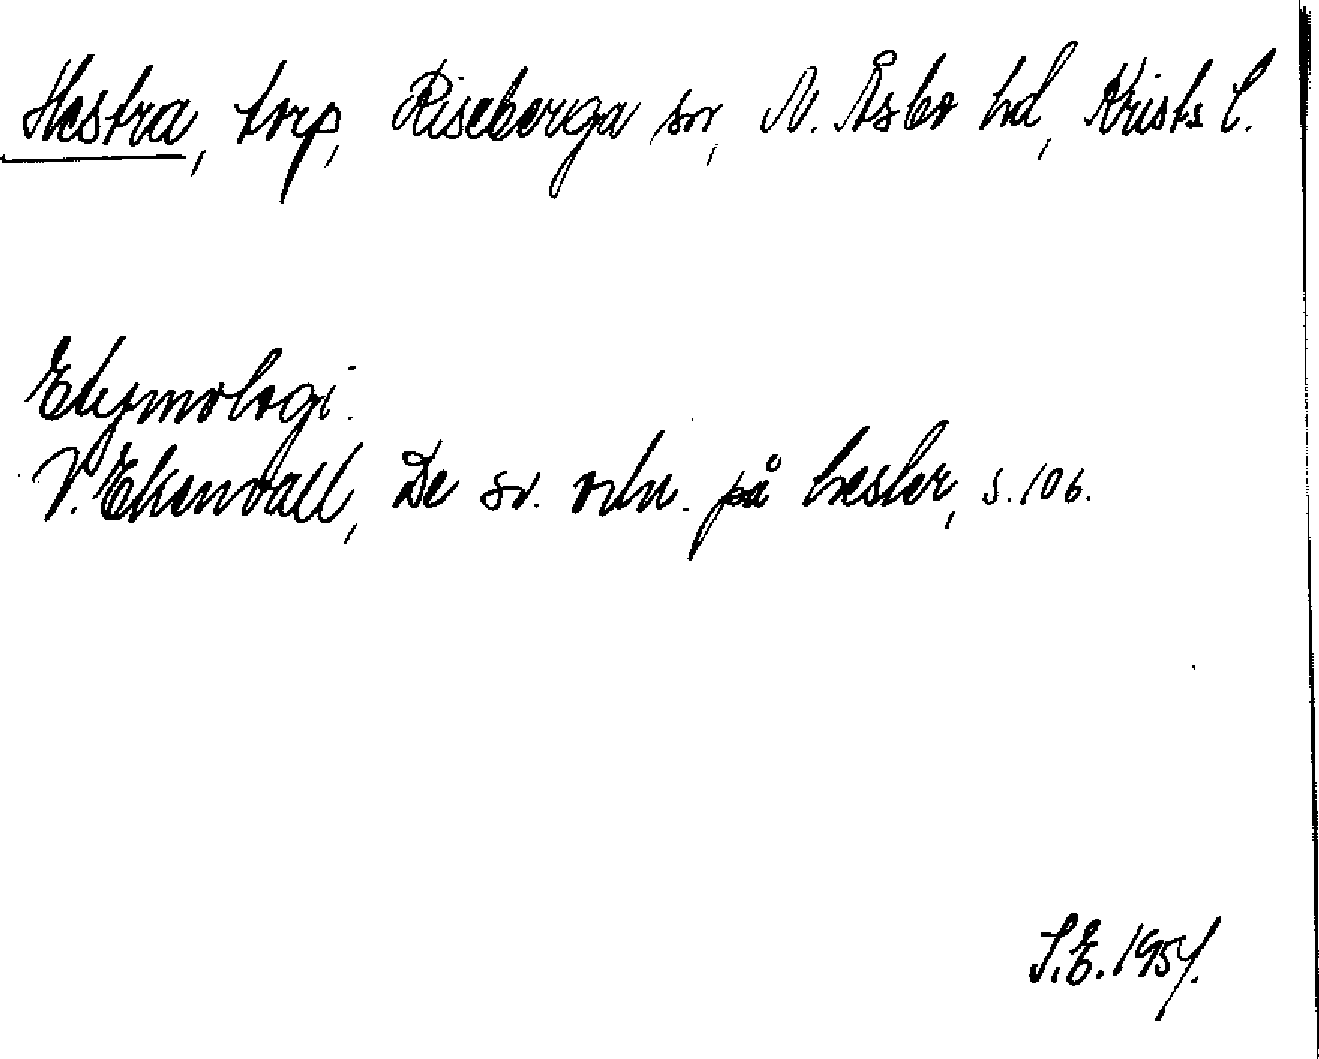 Hestra, torp, Riseberga sn, N. Åsbo hd, Krists l.
Etymologi.
V. Ekenvall, De sv. ortn. på hester, s. 106.
S.E. 1957.